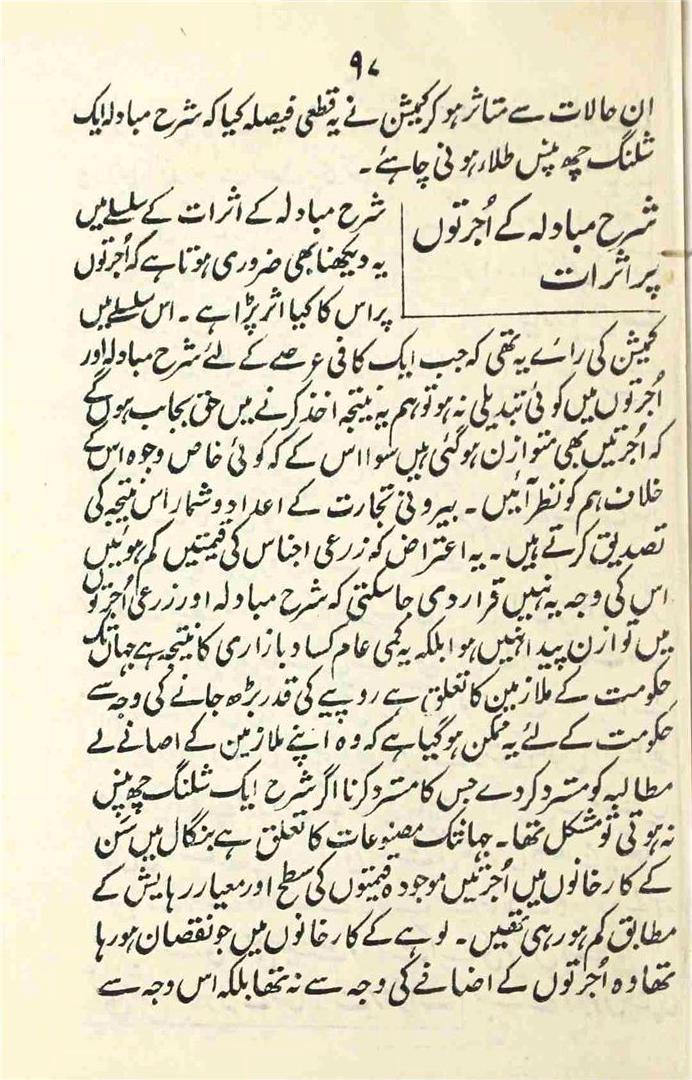 ۹۷
ان حالات سے متاثر ہو کر کمیشن نے یہ قطعی فیصلہ کیا کہ شرح مبادلہ ایک
شلنگ چھ پنس طلاء ہونی چاہئے۔
شرح مبادلہ کے اُجرتوں
پر اثرات
شرح مبادلہ کے اثرات کے سلسلے میں
یہ دیکھنا بھی ضروری ہوتا ہے کہ اُجرتوں
پر اس کا کیا اثر پڑا ہے۔ اس سلسلے میں
کمیشن کی رائے یہ تھی کہ جب ایک کافی عرصے کے لئے شرح مبادلہ اور
اُجرتوں میں کوئی تبدیلی نہ ہو تو ہم یہ نتیجہ اخذ کرنے میں حق بجانب ہوں گے
کہ اُجرتیں بھی متوازن ہو گئی ہیں سوا اس کے کہ کوئی خاص وجوہ اس کے
خلاف ہم کو نظر آئیں۔ بیرونی تجارت کے اعداد و شمار اس نتیجہ کی
تصدیق کرتے ہیں۔ یہ اعتراض کہ زرعی اجناس کی قیمتیں کم ہوئیں
اس کی وجہ یہ نہیں قرار دی جا سکتی کہ شرح مبادلہ اور زرعی اُجرتوں
میں توازن پیدا نہیں ہوا بلکہ یہ کمی عام کساد بازاری کا نتیجہ ہے جہاں تک
حکومت کے ملازمین کا تعلق ہے روپیے کی قدر بڑھ جانے کی وجہ سے
حکومت کے لئے یہ ممکن ہو گیا ہے کہ وہ اپنے ملازمین کے اضافے کے
مطالبہ کو مسترد کر دے جس کا مسترد کرنا اگر شرح ایک شلنگ چھ پنس
نہ ہوتی تو مشکل تھا۔ جہانتک مصنوعات کا تعلق ہے بنگال میں سَن
کے کارخانوں میں اُجرتیں موجودہ قیمتوں کی سطح اور معیار رہایش کے
مطابق کم ہو رہی تھیں۔ لوہے کے کارخانوں میں جو نقصان ہو رہا
تھا وہ اُجرتوں کے اضافے کی وجہ سے نہ تھا بلکہ اس وجہ سے